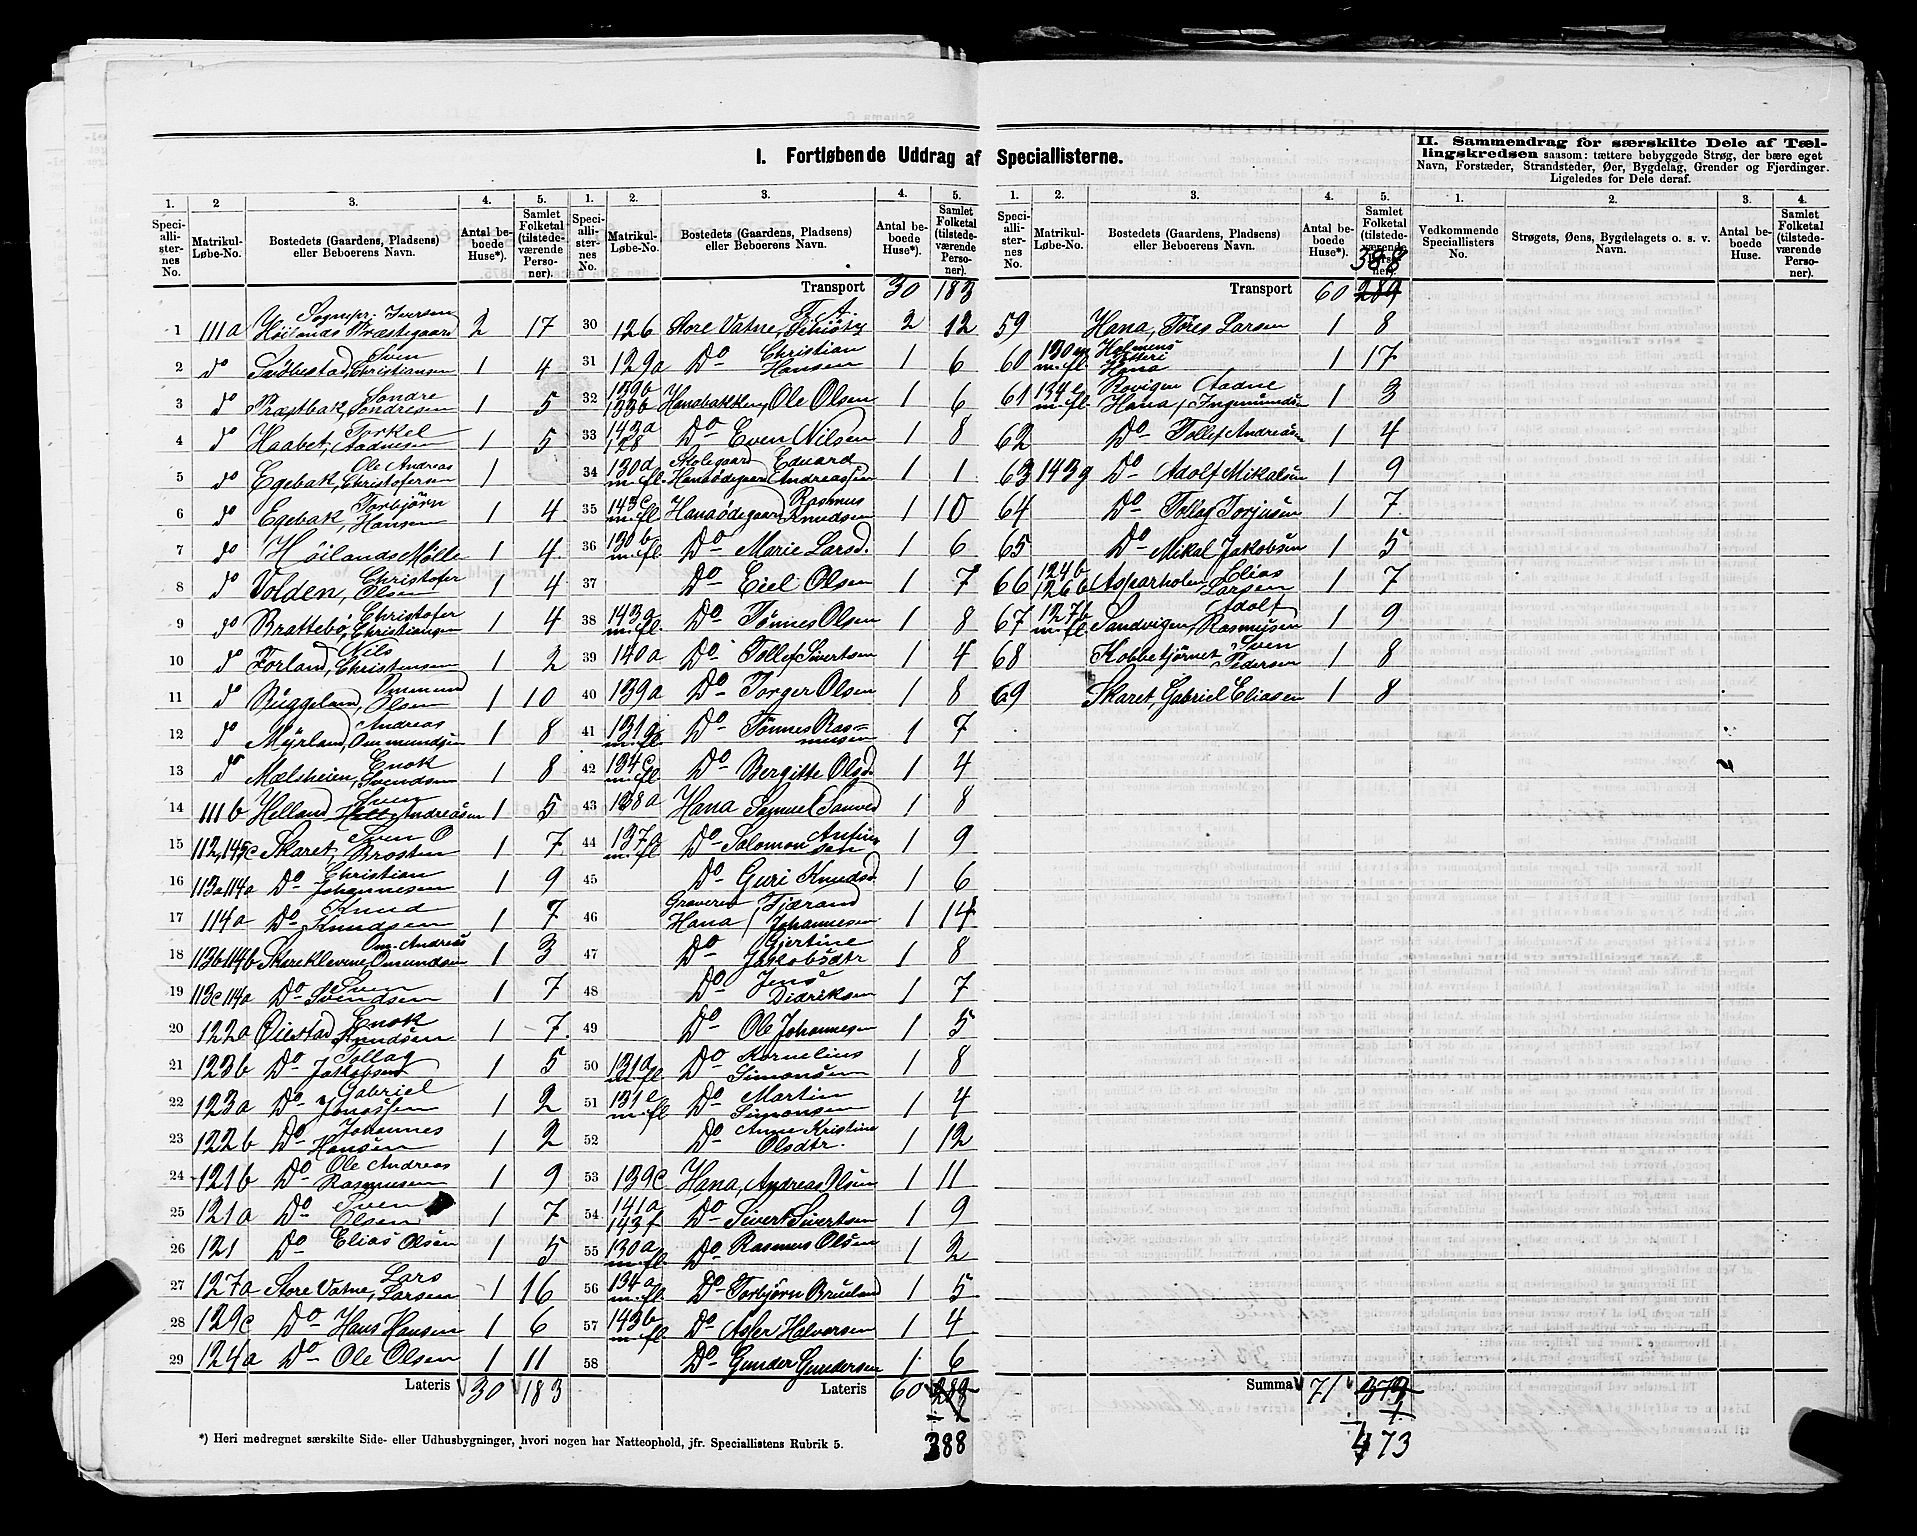 I. Fortløbende Uddrag af Speciallisterne.
II. Sammendrag for særskilte Dele af Tæl-
lingskredsen saasom: tættere bebyggede Strøg, der bære eget
Navn, Forstæder, Strandsteder, Øer, Bygdelag, Grender og Fjerdinger.
Ligeledes for Dele deraf.
1. 2 3. 4. 5.
Speciallisternes No. Matrikul-Løbe-No. Bostedets (Gaardens, Pladsens) eller Beboerens Navn. Antal beboede Huse*). Samlet Folketal (tilstedeværende Personer).
1 111a Sognepr. Iversen Höilands Præstegaard 2 17
2 do Christiansen Sven 1 4
3 do Præstbak, Sondre Sondresen 1 5
4 do Haabet, Torkel Aadnesen 1 5
5 do Egebak, Ole Andreas Christofersen 1
6 do Egebak, Torbjörn Hansen 1 4
7 do Höilands Mölle 1 4
8 do Volden, Christofer Olsen 1 4
9 do Brattebö, Christofer Christiansen 1 4
10 do Forland, Nils Christensen 1 2
11 do Ruggeland, Ommund Olsen 1 10
12 do Myrland, Andreas Ommundsen 1 8
13 do Mælsheien, Enok Svendsen 1 8
14 111b Helland Sven Andreasen 1 5
15 112,145c Skaret, Sven O Brosten 1 7
16 113a114a Do Christian Johannesen 1 9
17 114a Do Knud Knudsen 1 7
18 113b114b Skareklevene, Om. Andreas Omundsen 1 3
19 113c114a Do Sven Svendsen 1 7
20 122a Öiestad Enok Knudsen 1 7
21 123b Do Tollag Jakobsen 1 5
22 123a Do Gabriel Jonassen 1 2
23 122b Do Johannes Hansen 1 2
24 121b Do Ole Andreas Rasmusen 1 9
25 121a Do Sven Olsen 1 7
26 121 Do Elias Olsen 1 5
27 127a Store Vatne, Lars Larsen 1 16
28 129c Do Hans Hansen 1 6
29 124a Do Ole Olsen 1 11
Lateris 30 183
1. 2. 3. 4. 5.
Speciallisternes No. Matrikul-Løbe-No. Bostedets (Gaardens, Pladsens) eller Beboerens Navn. Antal beboede Huse*). Samlet Folketal (tilstedeværende Personer).
Transport 30 183
30 126 Store Vatne, T. A. 2 12
31 129a Do Christian Hansen 1 6
32 139b 133b Hanabakken, Ole Olsen 1 6
33 143a 128 Do Even Nilsen 1 8
34 130d m.fl. Skolegaard Hanaödegaard Eduard Andreassen 1 1
35 143c m.fl. Hanaödegaard Rasmus Knudsen 1 10
36 130b m.fl. Do Marie Larsd. 1 6
37 Do Eiel Olsen 1 7
38 143a m.fl. Do Tönnes Olsen 1 8
39 140a Do Tollef Sivertsen 1 4
40 139a Do Torger Olsen 1 8
41 131g m.fl. Do Tönnes Rasmusen 1 7
42 134c m.fl Do Bergitte Olsd. 1 4
43 138a Hana Samuel 1 8
44 137a m.fl Do Salomon 1 9
45 Do Guri Knudsd. 1 6
46 Graveren Hana, Tjærand Johannesen 1 14
47 Do Gjertine Jakobsdtr 1 8
48 Do Jens Didriksen 1 7
49 Do Ole Johannesen 1 5
50 131a m.fl. Do Kornelius Simonsen 1 8
51 131e m.fl Do Martin Simonsen 1 4
52 Do Anne Kristine Olsdtr. 1 12
53 139c Hana, Andreas Olsen 1 11
54 141a 143f Do Sivert Sivertsen 1 9
55 130a m.fl. Do Rasmus Olsen 1 2
56 134a m.fl Do Torbjörn Brueland 1 5
57 143b m.fl. Do Asser Halvorsen 1 4
58 Do Gunder Gundersen 1 6
Lateris 60 288
388
1. 2. 3. 4. 5.
Speciallisternes No. Matrikul-Løbe-No. Bostedets (Gaardens, Pladsens) eller Beboerens Navn. Antal beboede Huse*). Samlet Folketal (tilstedeværende Personer).
388
Transport 60 289
59 Hana, Töres Larsen 1 8
60 130m m.fl Holmens Hana 1 17
61 134e m.fl. Rovigen Hana, Aadne Ingemundsen 1 3
62 Do Tollef Andreasen 1 4
63 143g Do Adolf Mikalsen 1 9
64 Do Tollag Torjusen 1 7
65 Do Mikal Jakobsen 1 5
66 124b 126b Asparholen, Elias Larsen 1 7
67 127b m.fl. Sandvigen, Adolf Rasmusen 1 9
68 Kobbetjörnet Sven Pedersen 1 8
69 Skaret, Gabriel Eliasen 1 8
Summa 71 373
473
1. 2. 3. 4.
Vedkommende Speciallisters No. Strøgets, Øens, Bygdelagets o. s. v. Navn. Antal beboede Huse. Samlet Folketal (tilstedeværende Personer).
*) Heri medregnet særskilte Side- eller Udhusbygninger, hvori nogen har Natteophold, jfr. Speciallistens Rubrik 5.